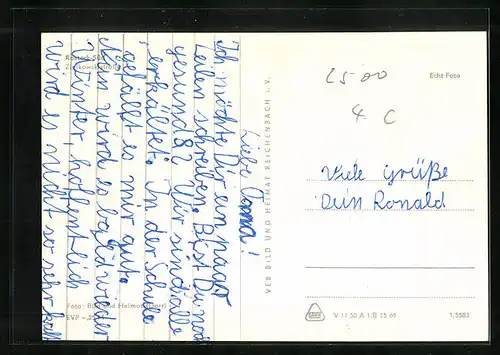 Rostock-Süd
Liebe Oma!
Ich möchte Dir ein paar
Zeilen schreiben. Bist Du noch
gesund? Wir sind alle
erkältet. In der Schule
gefällt es mir gut.
Nun wird es bald wieder
Winter, hoffentlich
wird es nicht so sehr kalt
Foto: Bild und Heimat
EVP
VEB BILD UND HEIMAT REICHENBACH i. V.
25-00
4 C
Echt Foto
Viele Grüße
Dein Ronald
V 11 50 A 1/B 15/69
1/5583